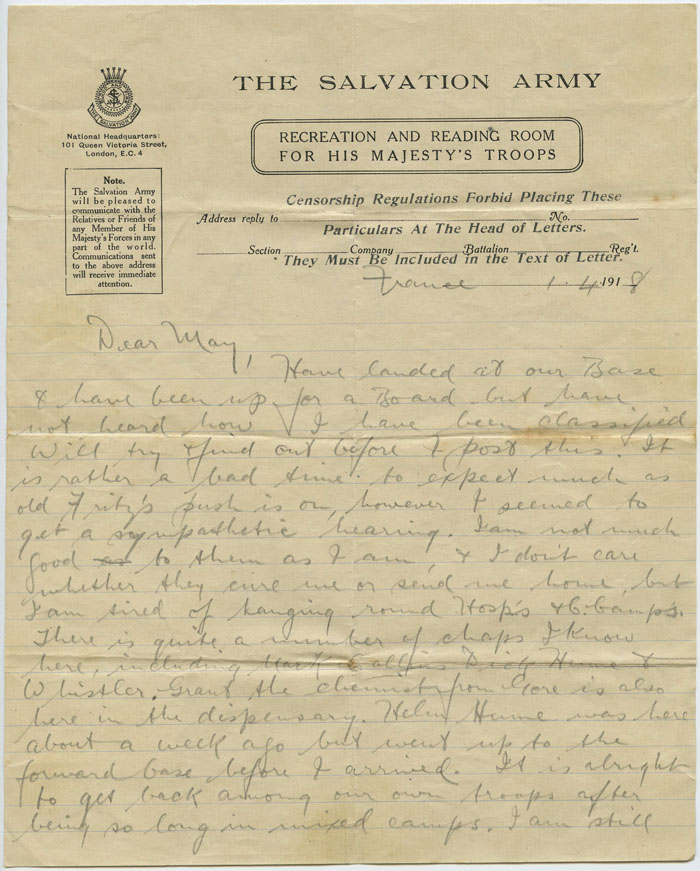 THE SALVATION ARMY
THE SALVATION ARMY
National Headquarters:
101 Queen Victoria Street,
London, E.C. 4
RECREATION AND READING ROOM
FOR HIS MAJESTY'S TROOPS
Note.
The Salvation Army
will be pleased to
communicate with the
Relatives or Friends of
any Member of His
Majesty's Forces in any
part of the world.
Communications sent
to the above address
will receive immediate
attention.
Censorship Regulations Forbid Placing These
Address reply to No.
Particulars At The Head of Letters.
Section Company Battalion Reg't.
They Must Be Included in the Text of Letter.
France 1.4.1918
Dear May,
Have landed at our Base
& have been up for a Board but have
not heard how I have been classified
Will try & find out before I post this. It
is rather a bad time to expect much as
old Fritz's push is on, however I seemed to
get a sympathetic hearing. I am not much
good to them as I am, & I don't care
whether they cure me or send me home, but
I am tired of hanging round Hosp's & C. Camps.
There is quite a number of chaps I know
here, including Collins Dick Hume &
Whistler. Grant the chemist from Gore is also
here in the dispensary. Hume was here
about a week ago but went up to the
forward base before I arrived. It is alright
to get back among our own troops after
being so long in mixed camps. I am still